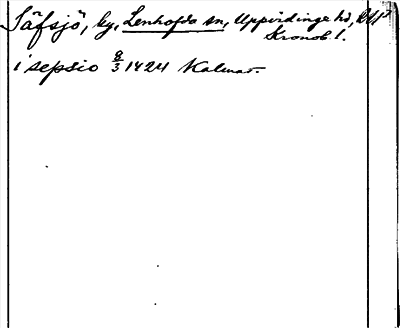 Säfsjö, by, Lenhofda sn, Uppvidinge hd,
Kronob. l.
i sepsio 8/3 1424 Kalmar.